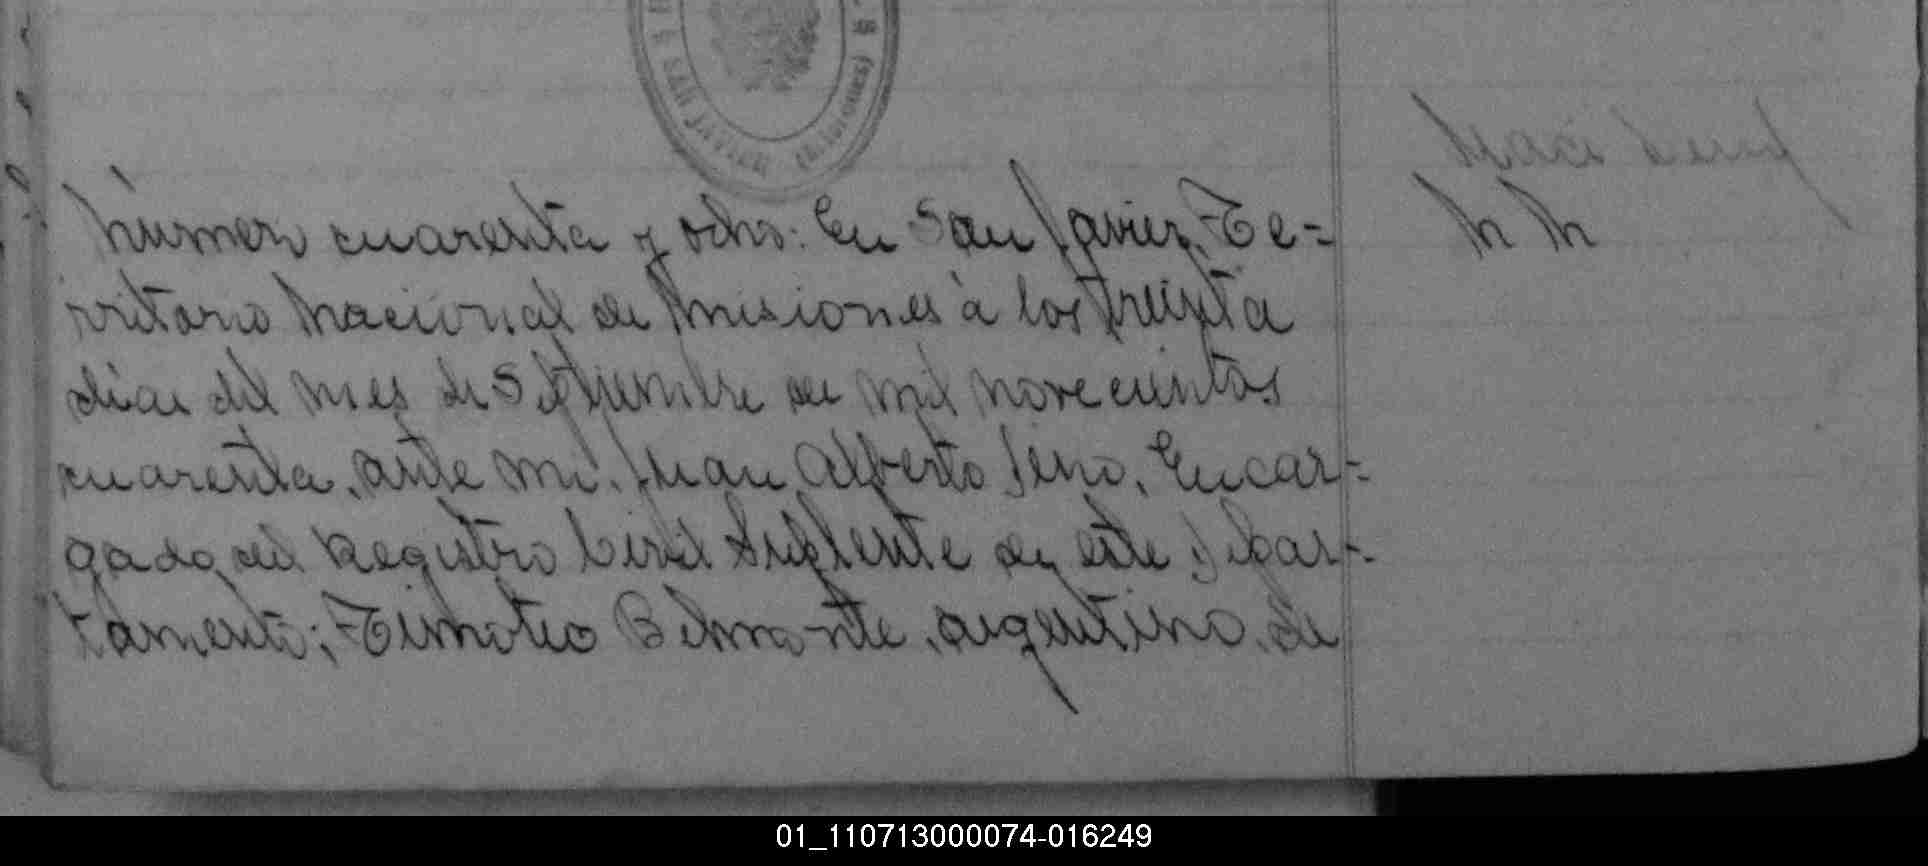 SAN JAVIER (Misiones)
Número cuarenta y ocho: En San Javier, Te-
rritorio Nacional de Misiones à los treinta
dias del mes de Septiembre de mil novecientos
cuarenta, ante mi, Juan Alberto Seno, Encar-
gado del Registro Civil Suplente de este Depar-
tamento; Timoteo Belmonte, argentino, de
N N
01_110713000074-016249